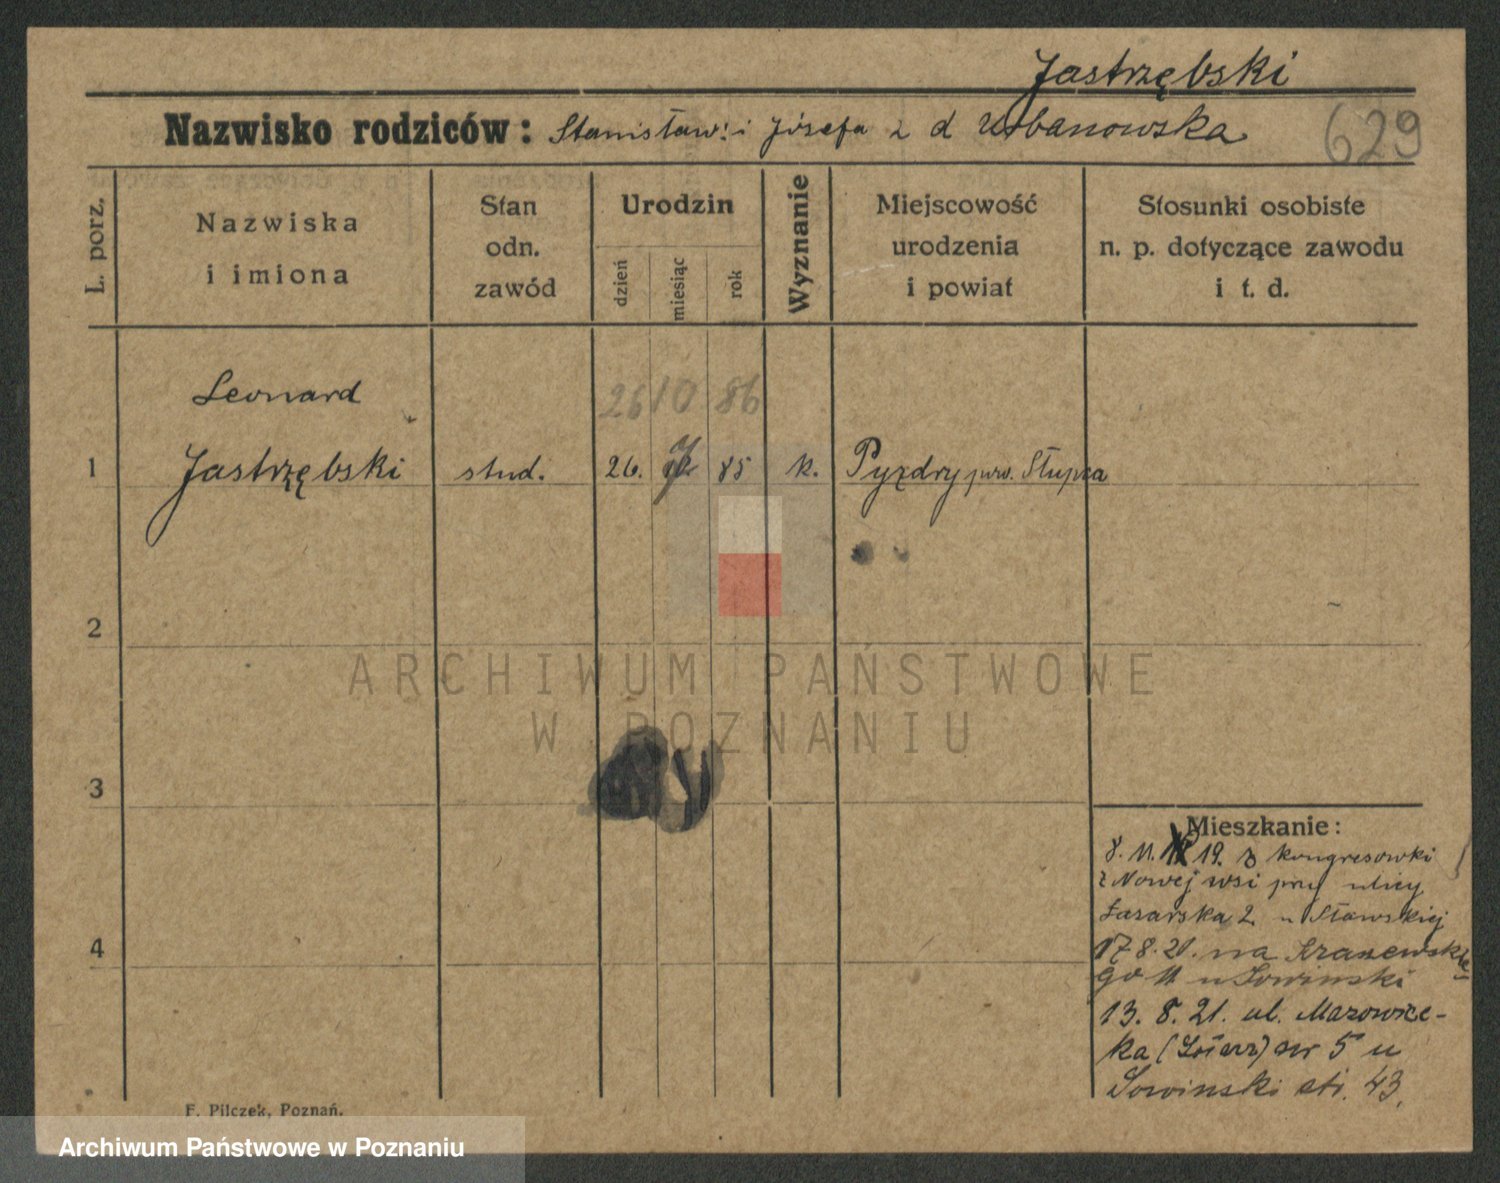 Jastrzębski
Nazwisko rodziców: Stanisław i Józefa z d Urbanowska
629
L. porz.
Nazwiska
i imiona
Stan
odn.
zawód
Urodzin
dzień
miesiąc
rok
Wyznanie
Miejscowość
urodzenia
i powiat
Stosunki osobiste
n. p. dotyczące zawodu
i t. d.
Leonard
26 10 86
1 Jastrzębski stud. 26. 85 k. Pyzdry pow. Słupca
2
ARCHIWUM PAŃSTWOWE
W POZNANIU
3
4
Mieszkanie:
8. 11. 19. z kongresowki
z Nowej wsi przy ulicy
Łazarska 2 u Stawskiej
17.8.20. na Kraszewskie-
go 11 u Łowinski
13. 8. 21. ul. Mazowiec-
ka nr 5 u
Łowinski 43.
F. Pilczek, Poznań.
Archiwum Państwowe w Poznaniu